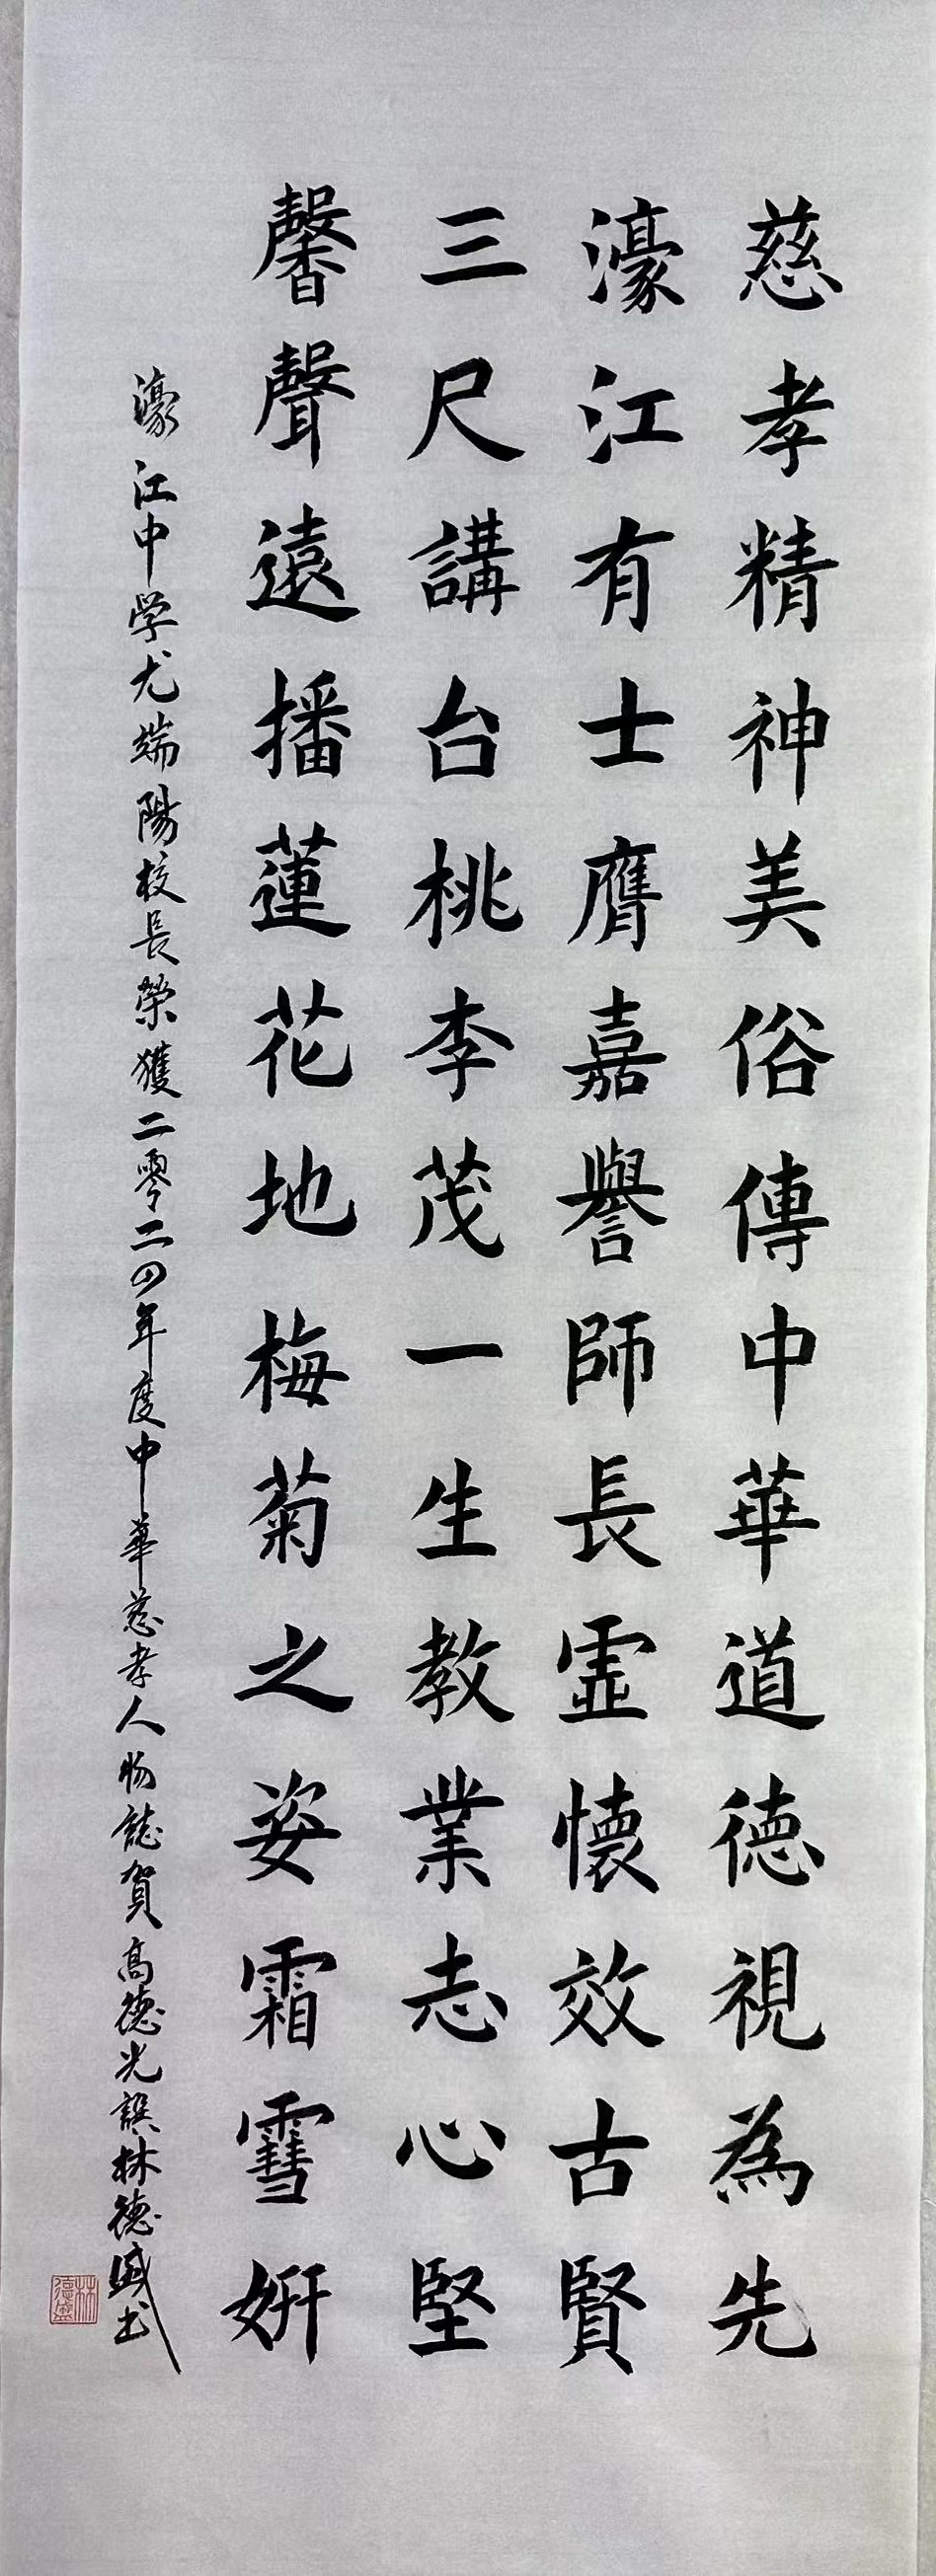 慈孝精神美俗傳中華道德視為先
濠江有士膺嘉譽師長虛懷效古賢
三尺講台桃李茂一生教業志心堅
馨聲遠播蓮花地梅菊之姿霜雪妍
濠江中学尤端陽校長榮獲二零二四年度中華慈孝人物誌賀高德光譔林德盛书
林德盛